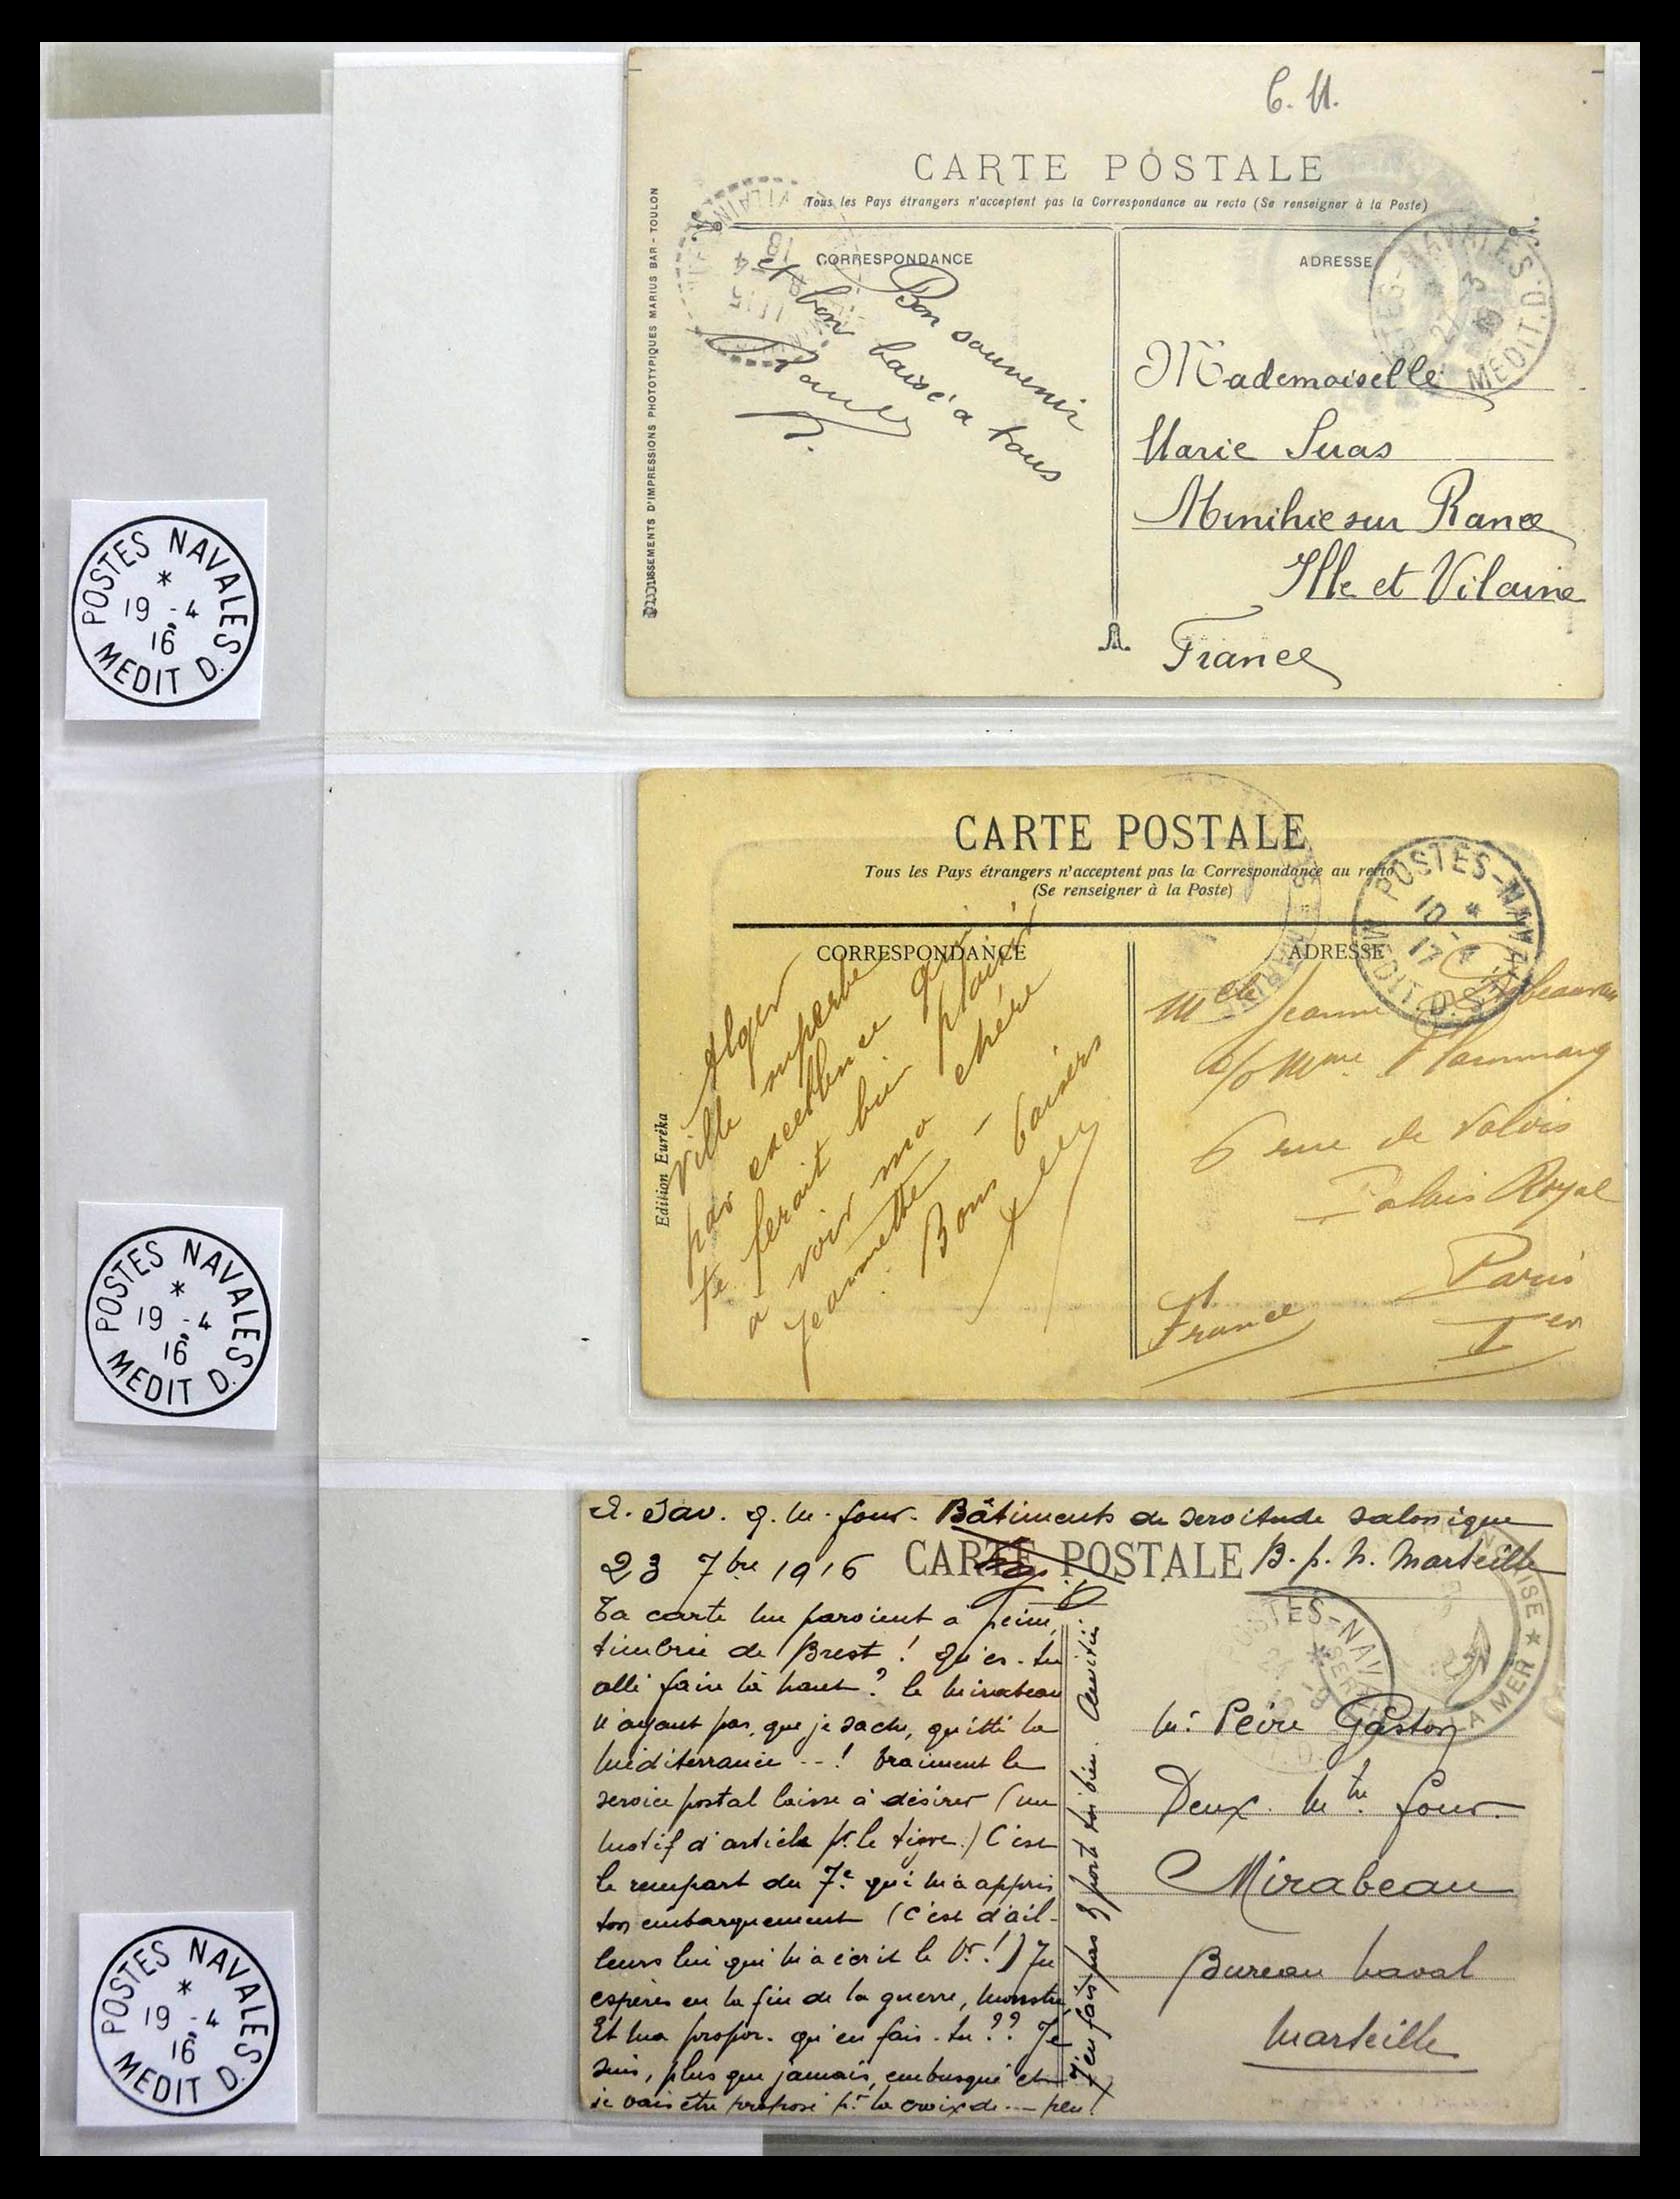 C. M.
CARTE POSTALE
Tous les Pays étrangers n'acceptent pas la Correspondance au recto (Se renseigner à la Poste)
CORRESPONDANCE
ADRESSE
D'IMPRESSIONS PHOTOTYPIQUES MARIUS BAR - TOULON
VILAINE
18
4
POSTES-NAVALES
MEDIT. D.
Bon souvenir
et bon baisé a tous
Mademoiselle
Marie Suas
Minihic sur Rance
Ille et Vilaine
France
POSTES NAVALES
*
19 -4
16
MEDIT D.
CARTE POSTALE
Tous les Pays étrangers n'acceptent pas la Correspondance au recto
(Se renseigner à la Poste)
CORRESPONDANCE
ADRESSE
Edition Euréka
POSTES-NAVALES
*
10 -
17
MEDIT. D.
Alger
ville superbe
par excellence qui
te ferait bien plaisir
à voir ma chére
Jeannette -
Bons baisers
Melle Jeanne
c/o Mme
6 rue de Valois
Palais Royal
Paris
Ier
France
POSTES NAVALES
*
19 -4
16
MEDIT D.
Bâtiments de servitude Salonique
B. p. n. Marseille
23 7bre 1916
CARTE POSTALE
Ta carte me parvient à peine,
timbrée de Brest ! Qu'es-tu
allé faire là haut ? le Mirabeau
n'ayant pas, que je sache, quitté la
Méditerranée --! Vraiment le
service postal laisse à désirer (un
motif d'article pr le tigre.) C'est
le rempart du 7e qui m'a appris
ton embarquement (C'est d'ail-
leurs lui qui m'a écrit le 1er !) Tu
espères en la fin de la guerre,
Et ma propos. qu'en fais-tu ?? Je
suis, plus que jamais, embusqué et
je vais être proposé pr la croix de --- peu !
T'en fais pas & porte toi bien. Amitiés.
POSTES-NAV
*
FRANÇAISE ★
A MER ★
Mr Peire Gaston
Deux. Mtre four.
Mirabeau
Bureau naval
Marseille
POSTES NAVALES
*
19 -4
16
MEDIT D.